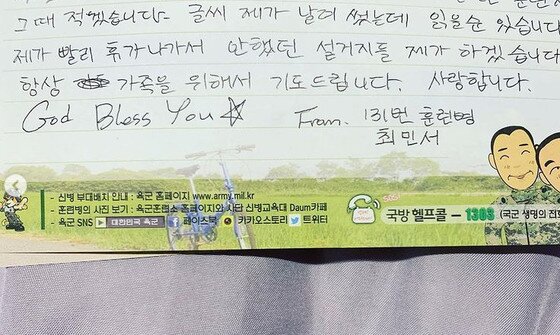 그때 적겠습니다- 글씨 제가 날려 썼는데 읽을순 있습니다
제가 빨리 휴가나가서 안했던 설거지들 제가 하겠습니다
항상 가족을 위해서 기도드립니다. 사랑합니다.
God Bless You☆ From. 131번 훈련병
최민서
- 신병 부대배치 안내 : 육군 홈페이지 www.army.mil.kr
- 훈련병의 사진 보기 : 육군훈련소 홈페이지와 사단 신병교육대 Daum카페
- 육군 SNS 대한민국 육군 f 페이스북 카카오스토리 트위터
SOS
국방 헬프콜 - 1303 (국군 생명의 전